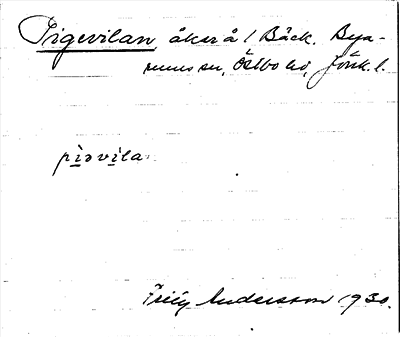 Pigevilan, åker å 1 Bäck. Bya-
rums sn, Östbo hd, Jönk. l.
pìəvìla
Frity Andersson 1930.